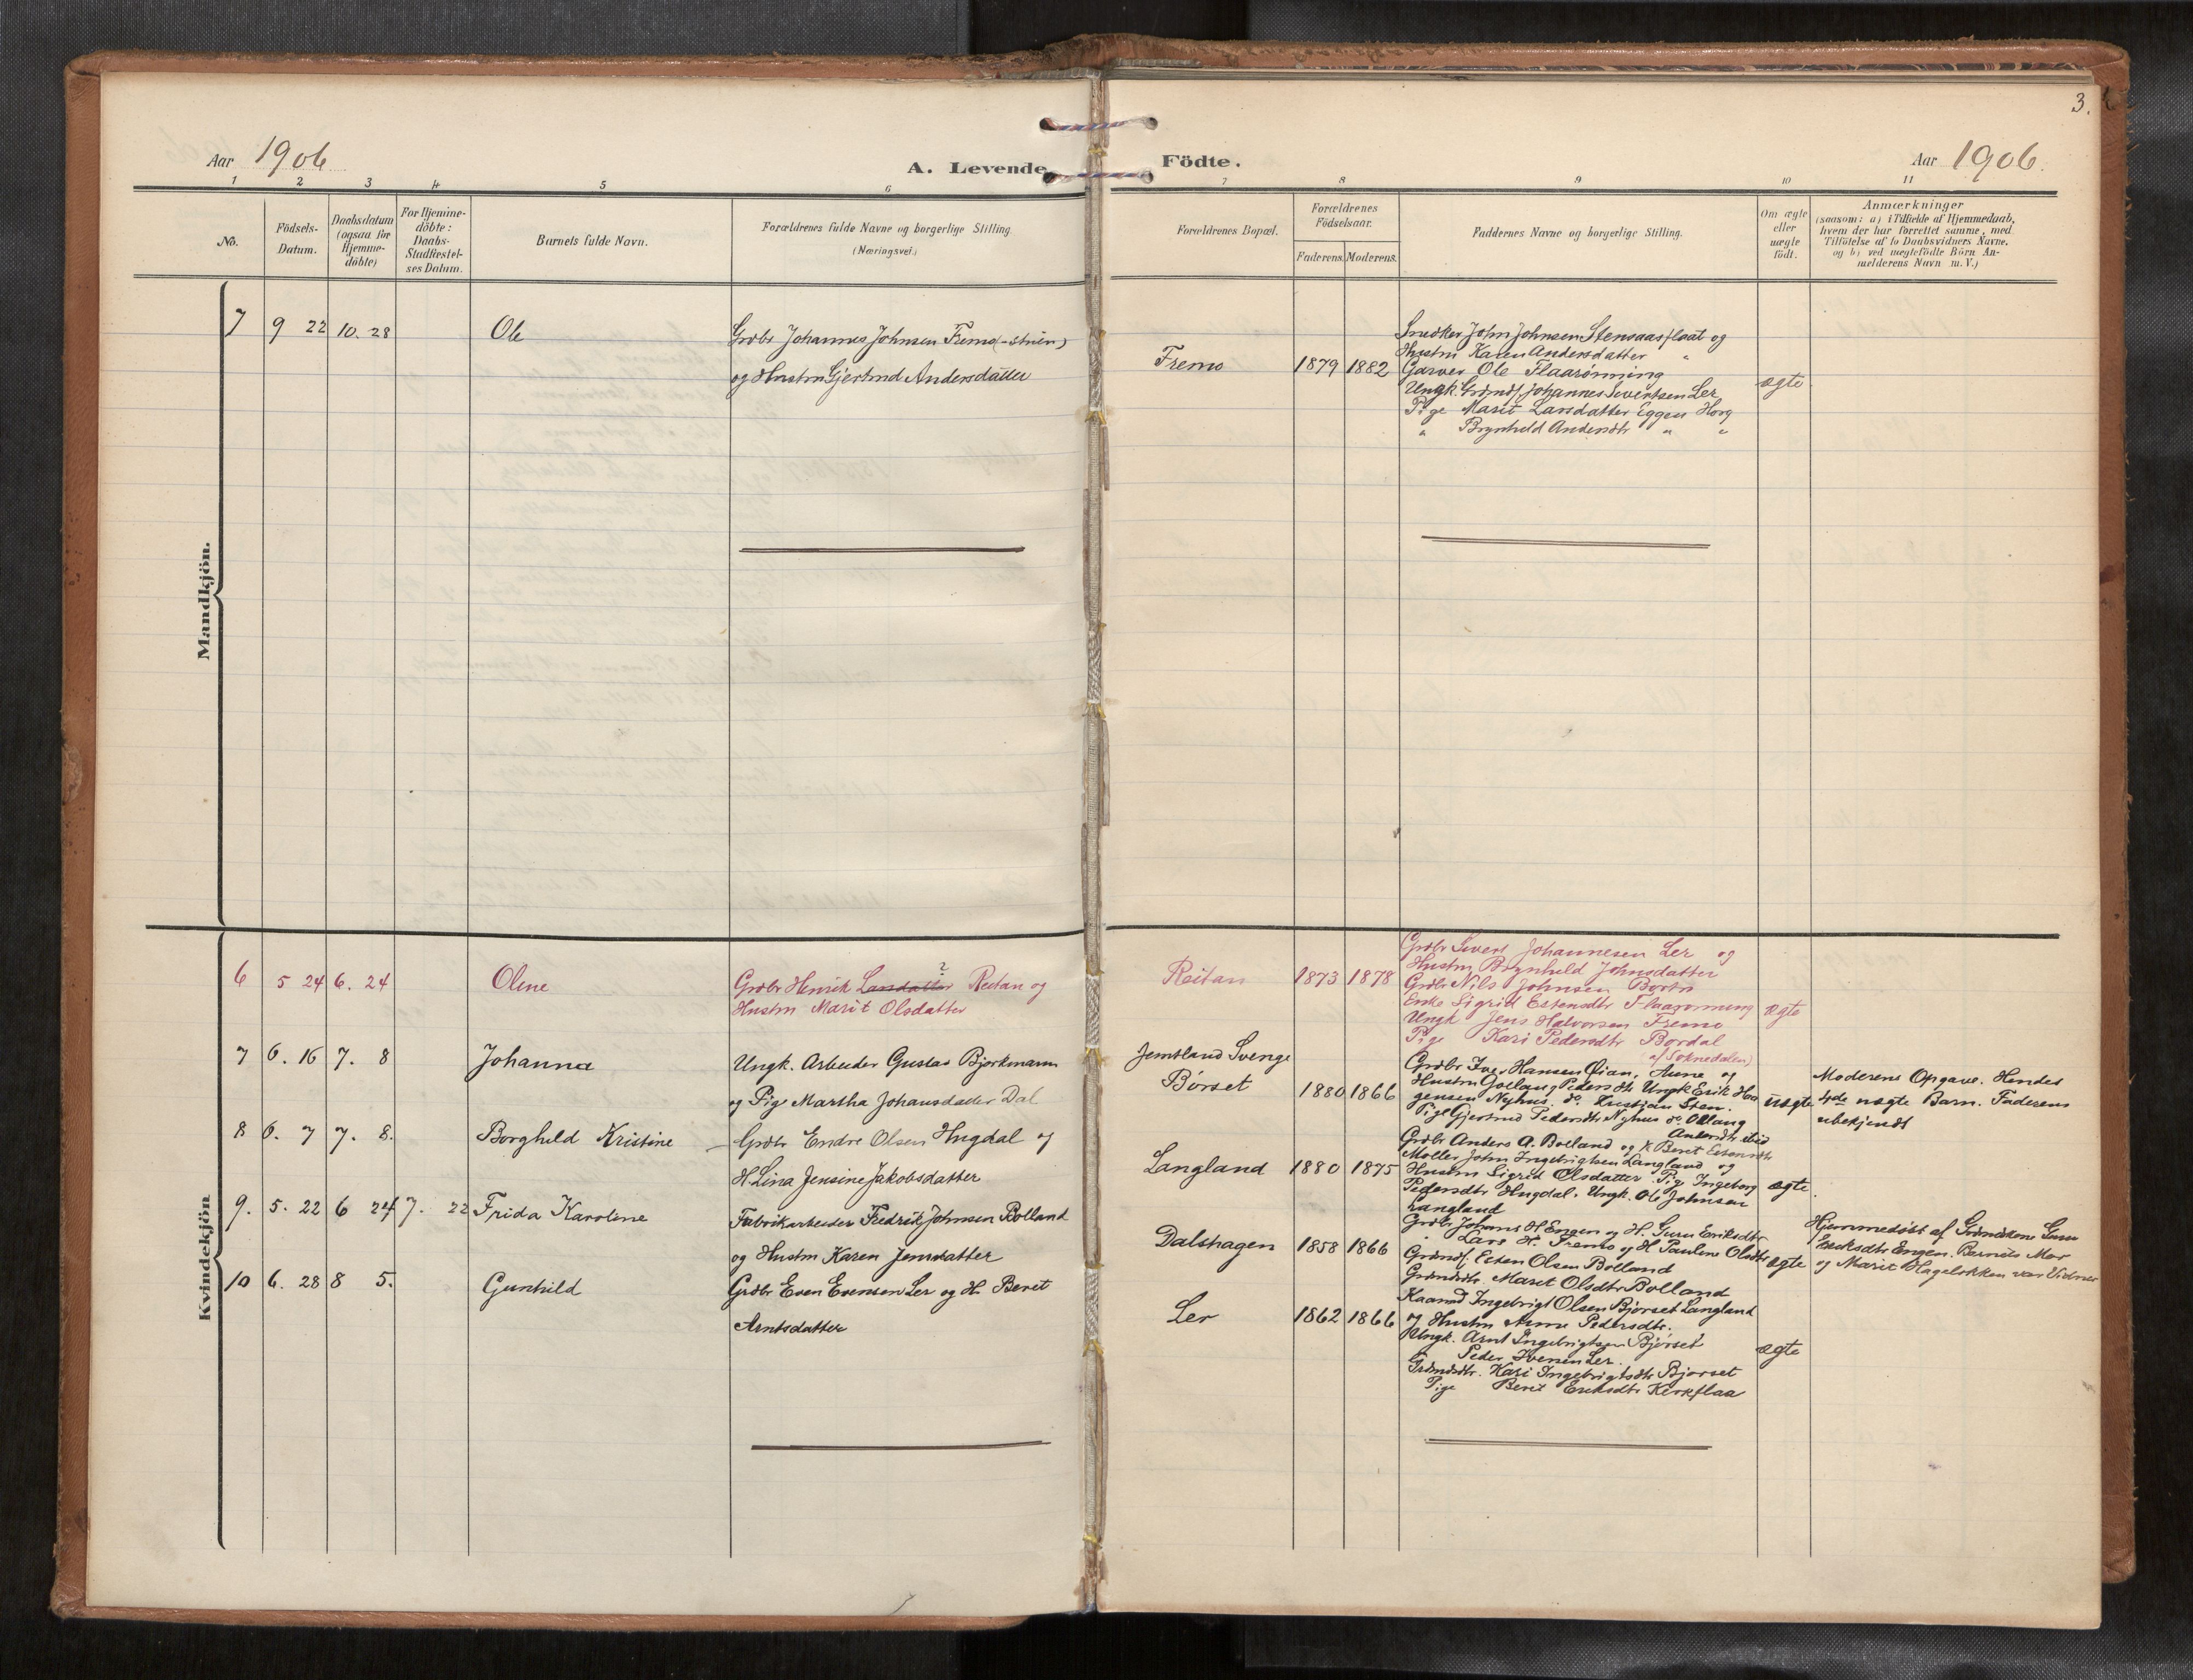 3.
Aar 1906
A. Levende
Födte.
Aar 1906.
1 2 3 4 5 6 7 8 9 10 11
No.
Födsels-
Datum.
Daabsdatum
(ogsaa for
Hjemme-
döbte)
For Hjemme-
döbte:
Daabs-
Stadfæstel-
ses Datum.
Barnets fulde Navn.
Forældrenes fulde Navne og borgerlige Stilling
(Næringsvei.)
Forældrenes Bopæl.
Forældrenes
Födselsaar.
Faderens. Moderens.
Faddernes Navne og borgerlige Stilling.
Om ægte
eller
uægte
födt.
Anmærkninger
(saasom: a) i Tilfælde af Hjemmedaab,
hvem der har forrettet samme, med
Tilföielse af to Daabsvidners Navne.
og b) ved uægtefödte Börn An-
melderens Navn m. V.)
Mandkjön.
7 9 22 10. 28 Ole
Grdbr Johannes Johnsen Fremo (-stuen)
og Hustru Gjertrud Andersdatter
Fremo 1879 1882
Snedker John Johnsen Stensaasflaat og
Hustru Karen Andersdatter "
Garver Ole Flaarønning
Ungk. Grdmdf. Johannes Sivertsen Ler
Pige Marit Larsdatter Eggen Horg
" Brynhild Andersdtr " "
ægte
Kvindekjön
6 5 24 6. 24 Oline
Grdbr Henrik Larsdatter ? Reitan og
Hustru Marit Olsdatter
Reitan 1873 1878
Grdbr Sivert Johannesen Ler og
Hustru Brynhild Johnsdatter
Grdbr Nils Johnsen Borten
Enke Sigrid Estensdtr Flaarønning
Ungk Jens Halvorsen Fremo
Pige Kari Pedersdtr Bordal
af Soknedalen)
ægte
7 6. 16 7. 8 Johanna
Ungk. Arbeider Gustav Bjorkmann
og Pige Martha Johansdatter Dal
Jemtland Sverige
Børset 1880 1866
Grdbr Iver Hansen Øian, Aune og
Hustru Gollaug Pedersdtr Ungk Erik Haa
gensen Nyhus. do. Kristian Sten.
Pige Gjertrud Pedersdtr Nyhus do. Ollaug
Andersdtr ibid
uægte
Moderens Opgave. Hendes
4de uægte Barn. Faderens
ubekjendt
8 6. 7 7. 8. Borghild Kristine
Grdbr Endre Olsen Hugdal og
H. Lina Jensine Jakobsdatter
Langland 1880 1875
Grdbr Anders A. Bolland og H. Beret Estensdtr
Møller John Ingebrigtsen Langland og
Hustru Sigrid Olsdatter. Pige Ingeborg
Pedersdtr Hugdal. Ungk. Ole Johnsen
Langland
ægte.
9. 5. 22 6 24 7. 22 Frida Karoline
Fabrikarbeider Fredrik Johnsen Bolland
og Hustru Karen Jensdatter
Dalshagen 1858 1866
Grdbr Johans H. Engen og H. Guru Eriksdtr
" Lars H. Fremo og H Pauline Olsdtr
Grdmdf. Esten Olsen Bolland
Grdmdsdtr. Maret Olsdtr Bolland
ægte
Hjemmedøbt af Grdmdskone Guru
Eriksdtr Engen. Barnets Mor
og Marit Hagelokken var Vidner
10 6. 28 8 5. Gunhild
Grdbr Even Evensen Ler og H. Beret
Arntsdatter
Ler 1862 1866
Kaarmd Ingebrigt Olsen Bjørset Langland
og Hustru Anne Pedersdtr.
Ungk. Arnt Ingebrigtsen Bjørset
Peder Iversen Ler.
Grdmdsdtr. Kari Ingebrigtsdtr Bjørset
Pige Beret Eriksdtr Kirkflaa
ægte